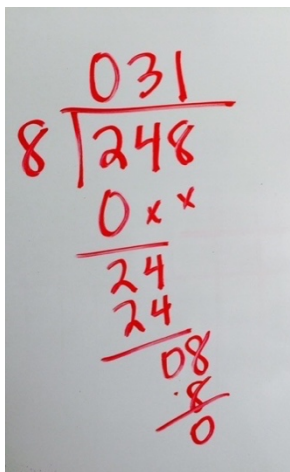 031
8 248
0 x x
24
24
08
8
0